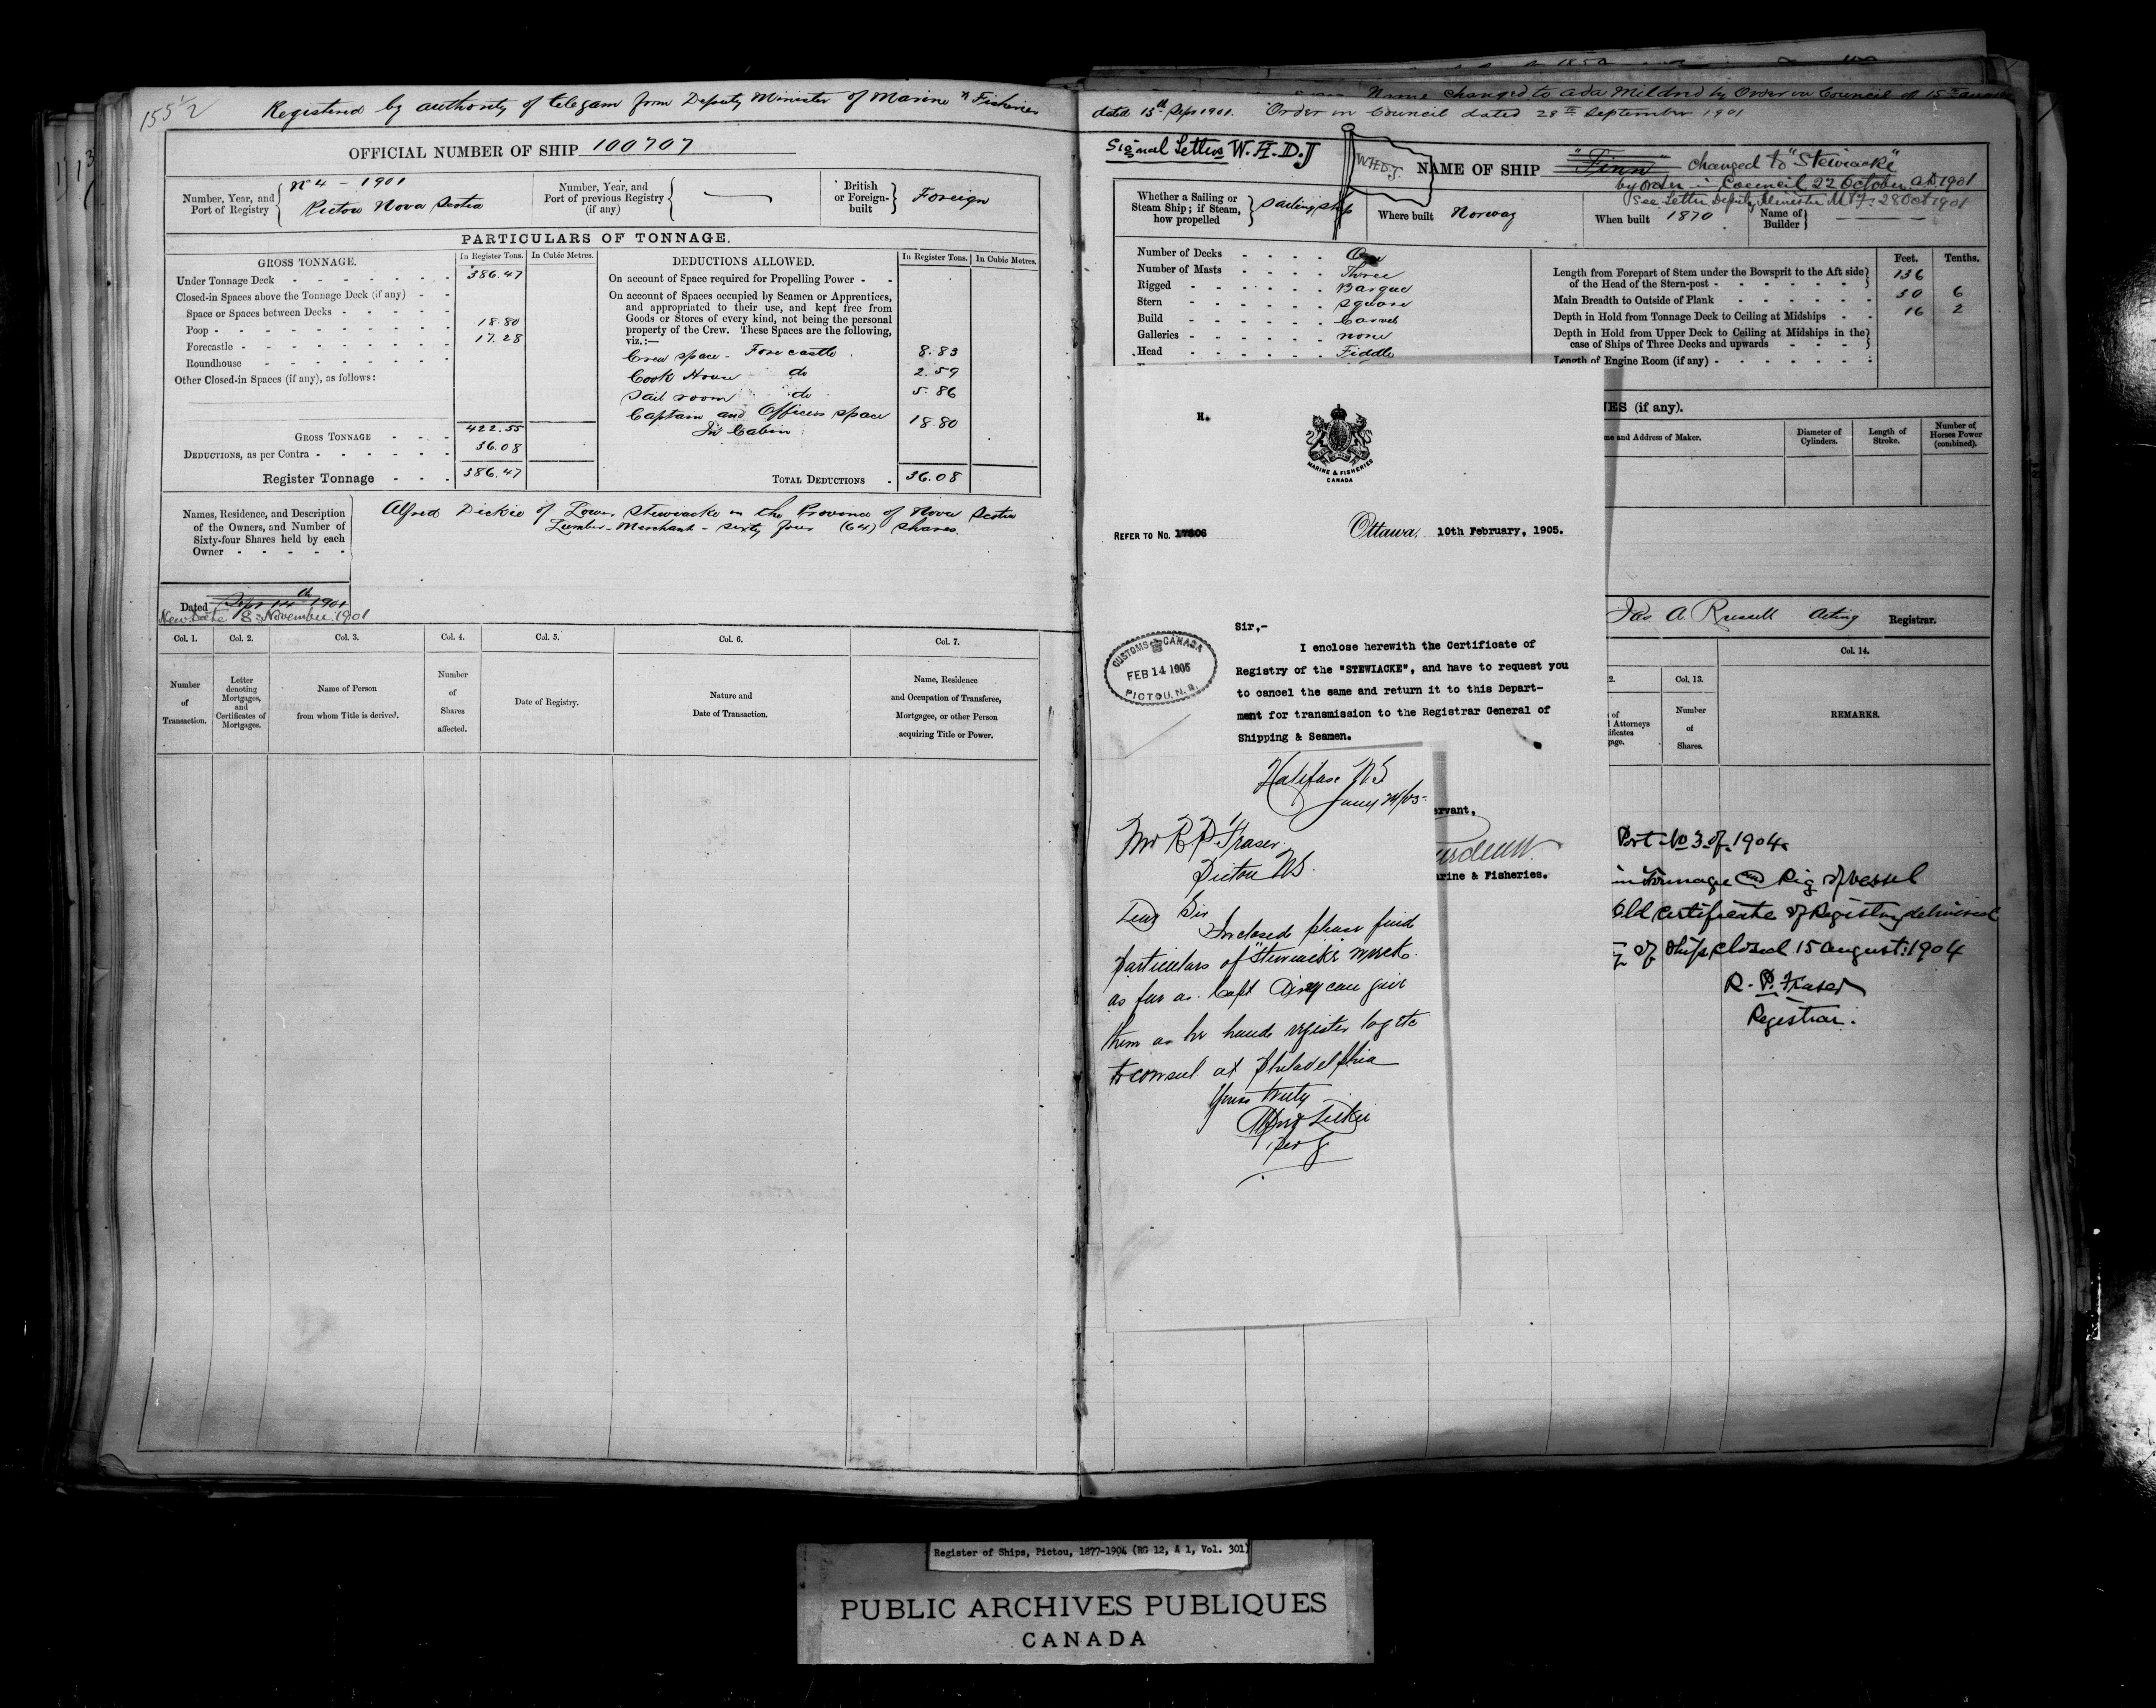 155 1/2
Registered by authority of telegam from Deputy Minister of Marine & Fisheries
OFFICIAL NUMBER OF SHIP 100707
Number, Year, and Port of Registry
No 4 - 1901
Pictou Nova Scotia
Number, Year, and Port of previous Registry (if any)
British or Foreign-built
Foreign
PARTICULARS OF TONNAGE.
GROSS TONNAGE.
In Register Tons.
In Cubic Metres.
Under Tonnage Deck 386.47
Closed-in Spaces above the Tonnage Deck (if any)
Space or Spaces between Decks
Poop 18.80
Forecastle 17.28
Roundhouse
Other Closed-in Spaces (if any), as follows:
GROSS TONNAGE 422.55
DEDUCTIONS, as per Contra 36.08
Register Tonnage 386.47
DEDUCTIONS ALLOWED.
In Register Tons.
In Cubic Metres.
On account of Space required for Propelling Power
On account of Spaces occupied by Seamen or Apprentices,
and appropriated to their use, and kept free from
Goods or Stores of every kind, not being the personal
property of the Crew. These Spaces are the following,
viz.:—
Crew space - Forecastle 8.83
Cook House do 2.59
Sail room do 5.86
Captain and Officers space
in Cabin 18.80
TOTAL DEDUCTIONS 36.08
Names, Residence, and Description
of the Owners, and Number of
Sixty-four Shares held by each
Owner
Alfred Dickie of Lower Stewiacke in the Province of Nova Scotia
Lumber-Merchant - sixty four (64) shares.
Dated Sept 14th 1901
New Date 8 November 1901
Col. 1.
Col. 2.
Col. 3.
Col. 4.
Col. 5.
Col. 6.
Col. 7.
Number of Transaction.
Letter denoting Mortgages, and Certificates of Mortgages.
Name of Person from whom Title is derived.
Number of Shares affected.
Date of Registry.
Nature and Date of Transaction.
Name, Residence and Occupation of Transferee, Mortgagee, or other Person acquiring Title or Power.
Name changed to Ada Mildred by Order in Council of 15th
dated 15th Sept 1901. Order in Council dated 28th September 1901
Signal Letters W.H.D.J
W.H.D.J.
NAME OF SHIP "Finn" changed to "Stewiacke"
by order in Council 22 October A.D. 1901
See Letter Deputy Minister M & F. 28 Oct 1901
Whether a Sailing or Steam Ship; if Steam, how propelled
Sailing ship
Where built Norway
When built 1870
Name of Builder
Number of Decks One
Number of Masts Three
Rigged Barque
Stern Square
Build Carvel
Galleries none
Head Fiddle
Feet. Tenths.
Length from Forepart of Stem under the Bowsprit to the Aft side
of the Head of the Stern-post 136
Main Breadth to Outside of Plank 30 6
Depth in Hold from Tonnage Deck to Ceiling at Midships 16 2
Depth in Hold from Upper Deck to Ceiling at Midships in the
case of Ships of Three Decks and upwards
Length of Engine Room (if any)
NES (if any).
me and Address of Maker.
Diameter of Cylinders.
Length of Stroke.
Number of Horses Power (combined).
H.
MARINE & FISHERIES
CANADA
REFER TO No. 17806
Ottawa, 10th February, 1905.
Sir,-
I enclose herewith the Certificate of
Registry of the "STEWIACKE", and have to request you
to cancel the same and return it to this Depart-
ment for transmission to the Registrar General of
Shipping & Seamen.
CUSTOMS CANADA
FEB 14 1905
PICTOU, N.S.
ervant,
arine & Fisheries.
Halifax NS
Mr R P Fraser
Pictou NS
Dear Sir
Inclosed please find
particulars of "Stewiacke" wreck
as far as Capt can give
them as he hands register log etc
to consul at Philadelphia
Yours truly
Alfred Dickie
Per
Jas A. Russell Acting Registrar.
Col. 14.
2.
Col. 13.
of
l Attorneys
ificates
page.
Number of Shares.
REMARKS.
Port No 3 of 1904
in Tonnage and Rig of vessel
Old Certificate of Registry delivered
of Ship closed 15 August 1904
R. P. Fraser
Registrar.
Register of Ships, Pictou, 1877-1904 (RG 12, A 1, Vol. 301)
PUBLIC ARCHIVES PUBLIQUES
CANADA